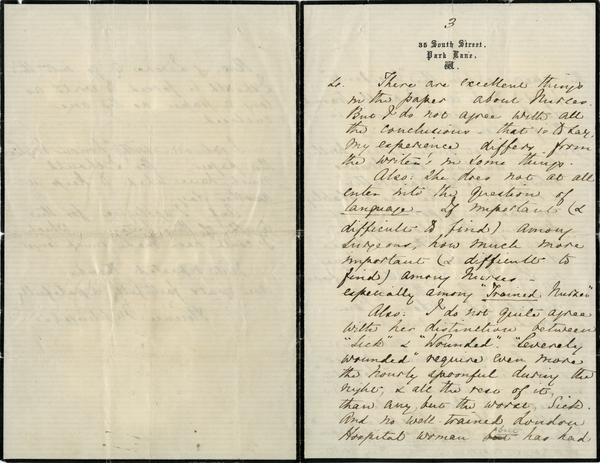 3
35 South Street,
Park Lane,
W.
4. There are excellent things
in the paper about Nurses.
But I do not agree with all
the conclusions that is to say,
my experience differs from
the writer's in some things.
Also: She does not at all
enter into the question of
language. If important (&
difficult to find) among
Surgeons, how much more
important (& difficult to
find) among Nurses -
especially among "Trained Nurses"
Also: I do not quite agree
with her distinction between
"Sick" & "Wounded". "Severely
wounded" require even more
the hourly spoonful during the
night, & all the rest of it,
than any but the worst Sick.
And no well-trained London
Hospital woman but has had